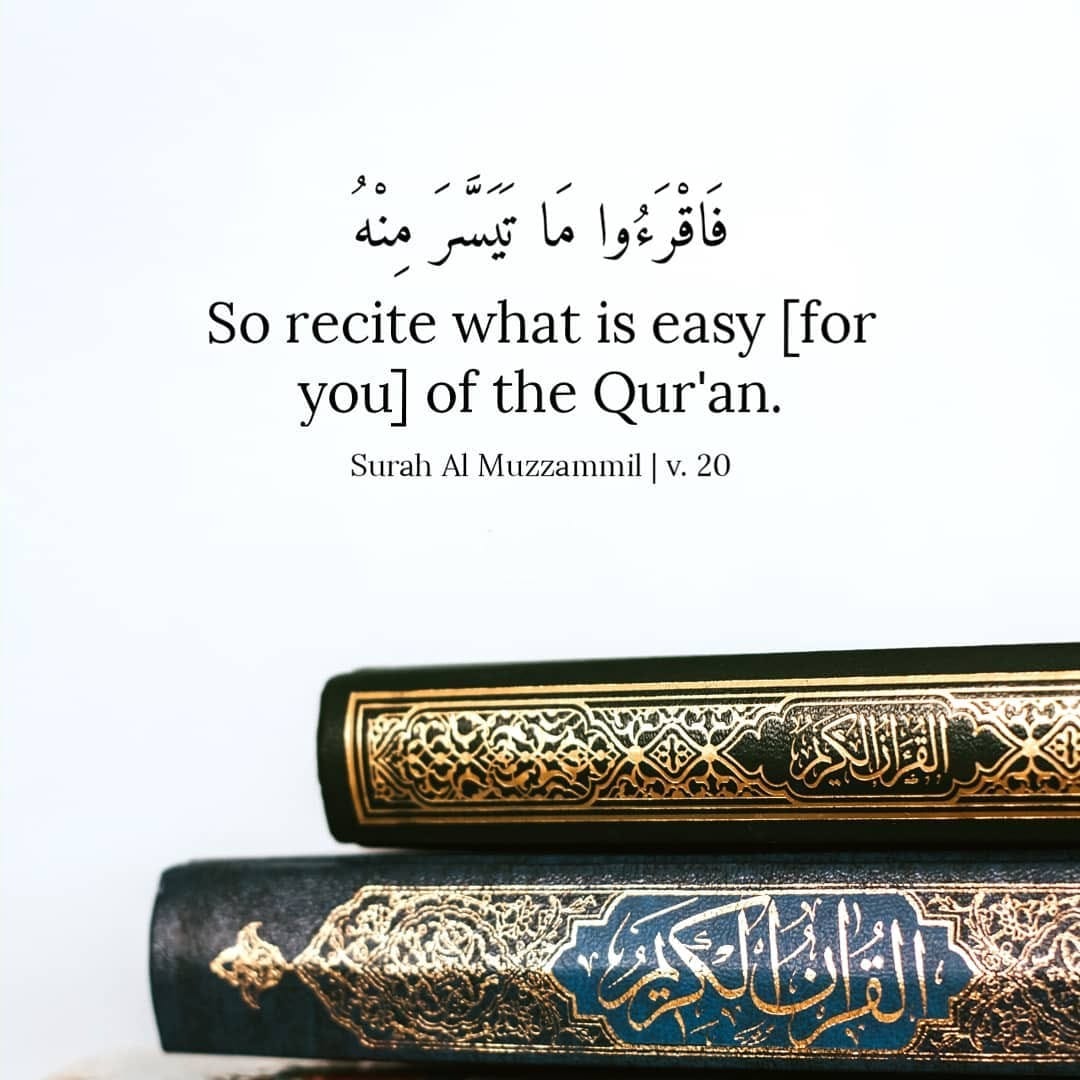 فَاقْرَءُوا مَا تَيَسَّرَ مِنْهُ
So recite what is easy [for
you] of the Qur'an.
Surah Al Muzzammil | v. 20
القرآن الكريم
القرآن الكريم